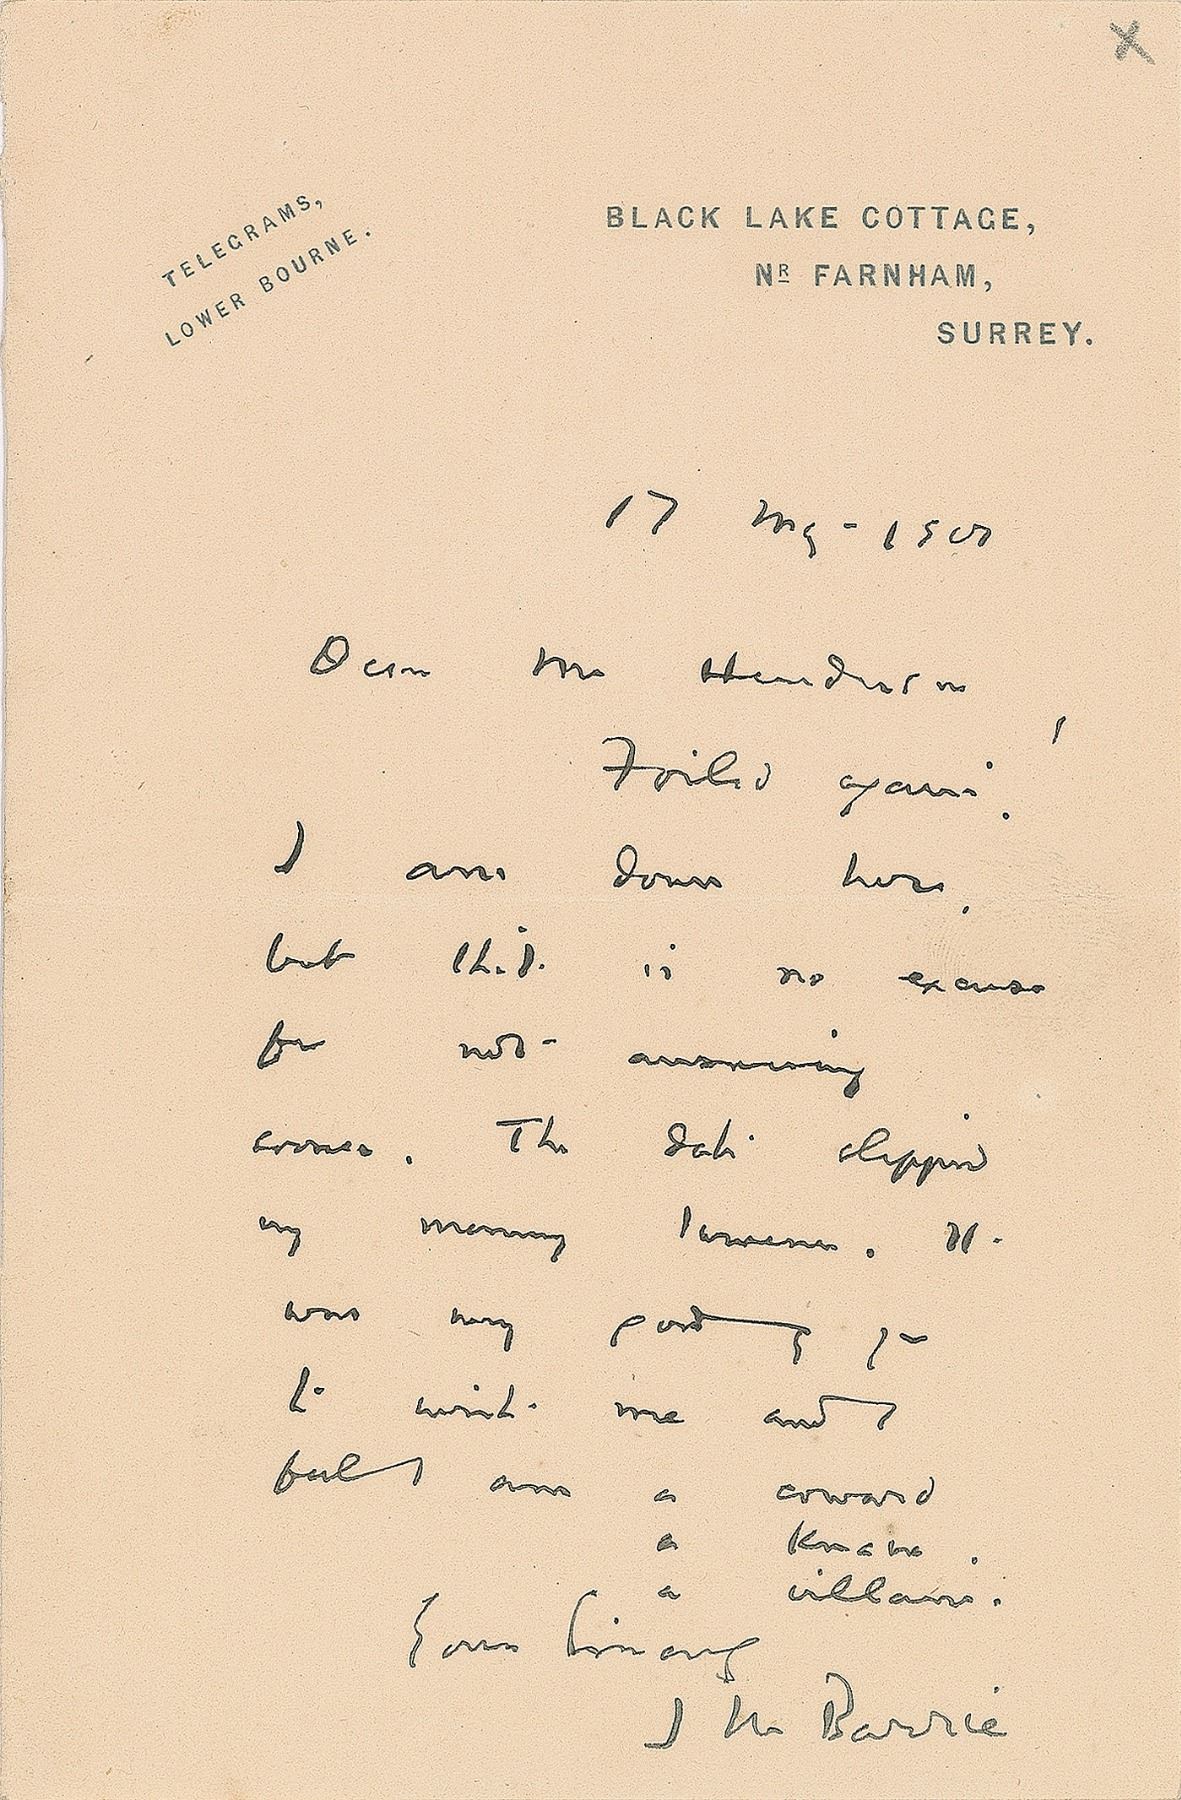 TELEGRAMS,
LOWER BOURNE.
BLACK LAKE COTTAGE,
Nr FARNHAM,
SURREY.
17 May - 190
Dear Mr Henderson
Foiled again!
I am down here,
but that is no excuse
for not answering
sooner. The date slipped
my memory however. It
was very good of you
to write me and I
feel I am a coward
a knave.
a villain.
Yours sincerely
J M Barrie